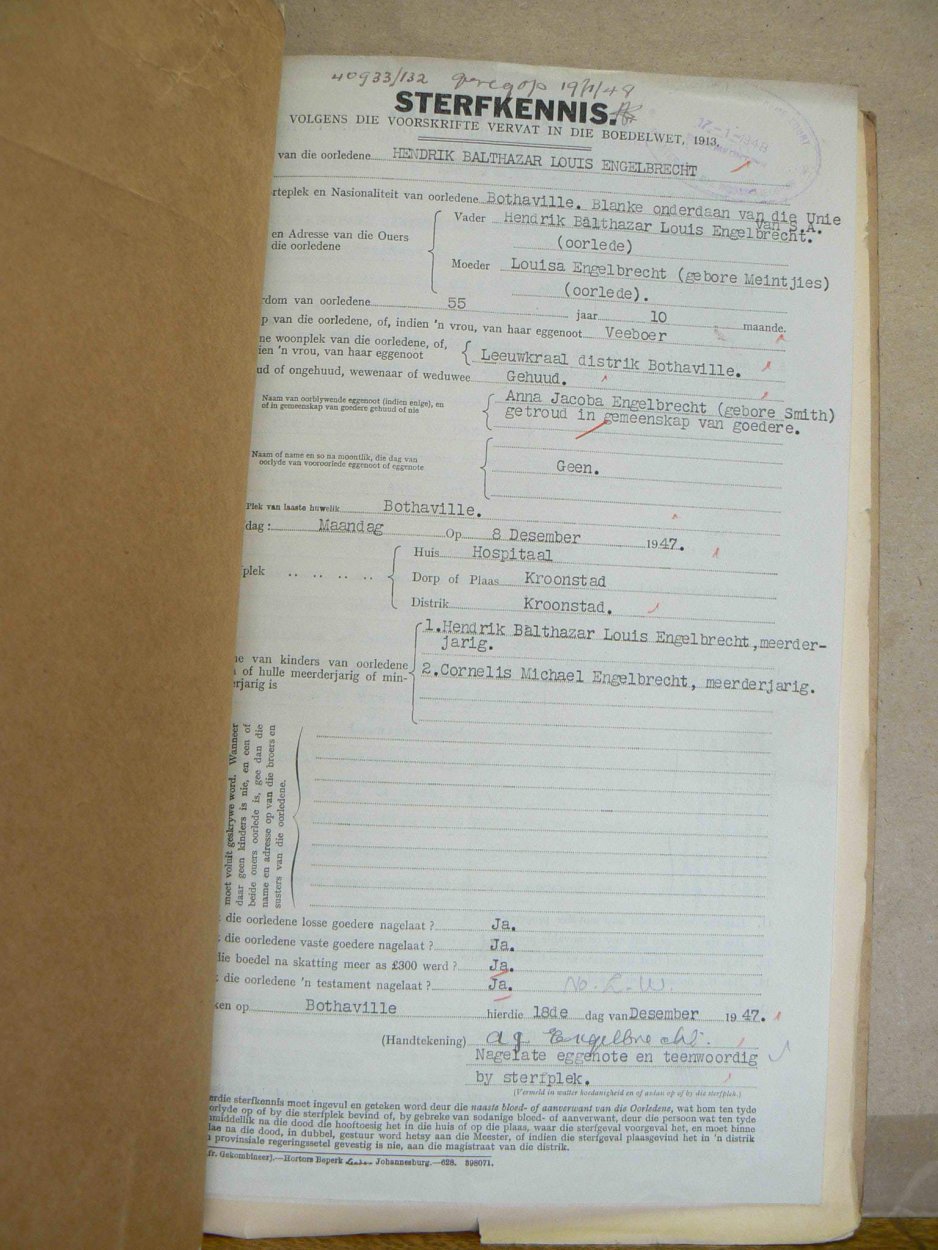 40933/132 19/1/48
STERFKENNIS.
VOLGENS DIE VOORSKRIFTE VERVAT IN DIE BOEDELWET, 1913.
17-1-1948
van die oorledene HENDRIK BALTHAZAR LOUIS ENGELBRECHT
rteplek en Nasionaliteit van oorledene Bothaville. Blanke onderdaan van die Unie
van S.A.
Vader Hendrik Balthazar Louis Engelbrecht.
en Adresse van die Ouers
die oorledene
(oorlede)
Moeder Louisa Engelbrecht (gebore Meintjies)
(oorlede).
rdom van oorledene 55 jaar 10 maande.
p van die oorledene, of, indien 'n vrou, van haar eggenoot Veeboer
ne woonplek van die oorledene, of,
ien 'n vrou, van haar eggenoot Leeuwkraal distrik Bothaville.
ud of ongehuud, wewenaar of weduwee Gehuud.
Naam van oorblywende eggenoot (indien enige), en
of in gemeenskap van goedere gehuud of nie
Anna Jacoba Engelbrecht (gebore Smith)
getroud in gemeenskap van goedere.
Naam of name en so na moontlik, die dag van
oorlyde van vooroorlede eggenoot of eggenote
Geen.
Plek van laaste huwelik Bothaville.
dag: Maandag Op 8 Desember 1947.
Huis Hospitaal
plek .. .. .. .. Dorp of Plaas Kroonstad
Distrik Kroonstad.
1.Hendrik Balthazar Louis Engelbrecht,meerder-
jarig.
e van kinders van oorledene
of hulle meerderjarig of min-
erjarig is
2.Cornelis Michael Engelbrecht, meerderjarig.
moet voluit geskrywe word. Wanneer
daar geen kinders is nie, en een of
beide ouers oorlede is, gee dan die
name en adresse op van die broers en
susters van die oorledene.
die oorledene losse goedere nagelaat? Ja.
die oorledene vaste goedere nagelaat? Ja.
die boedel na skatting meer as £300 werd? Ja.
die oorledene 'n testament nagelaat? Ja. No. L.W.
ken op Bothaville hierdie 18de dag van Desember 1947.
(Handtekening) A J Engelbrecht.
Nagelate eggenote en teenwoordig
by sterfplek.
(Vermeld in watter hoedanigheid en of aldan op of by die sterfplek.)
erdie sterfkennis moet ingevul en geteken word deur die naaste bloed- of aanverwant van die Oorledene, wat hom ten tyde
orlyde op of by die sterfplek bevind of, by gebreke van sodanige bloed- of aanverwant, deur die persoon wat ten tyde
nmiddellik na die dood die hooftoesig het in die huis of op die plaas, waar die sterfgeval voorgeval het, en moet binne
dae na die dood, in dubbel, gestuur word hetsy aan die Meester, of indien die sterfgeval plaasgevind het in 'n distrik
n provinsiale regeringssetel gevestig is nie, aan die magistraat van die distrik.
fr. Gekombineer).—Hortors Beperk Johannesburg.—628. 898071.